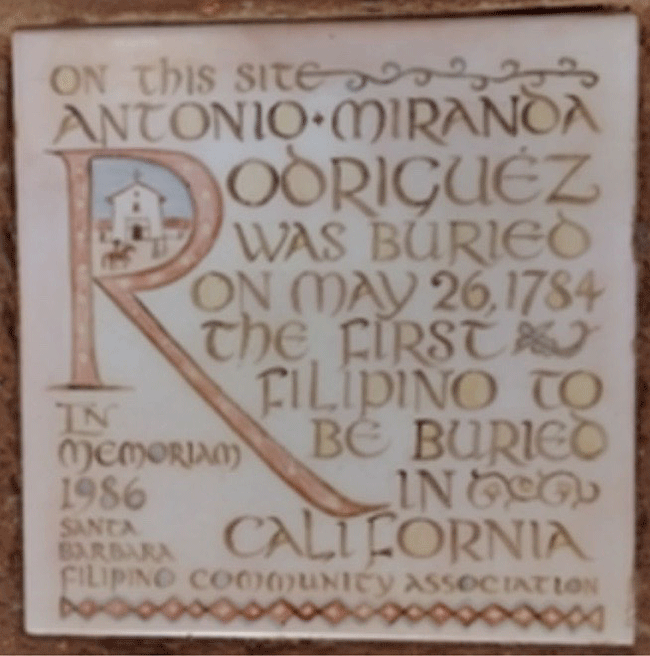 ON THIS SITE
ANTONIO · MIRANDA
RODRIGUEZ
WAS BURIED
ON MAY 26, 1784
THE FIRST
FILIPINO TO
BE BURIED
IN
CALIFORNIA
IN
MEMORIAM
1986
SANTA
BARBARA
FILIPINO COMMUNITY ASSOCIATION